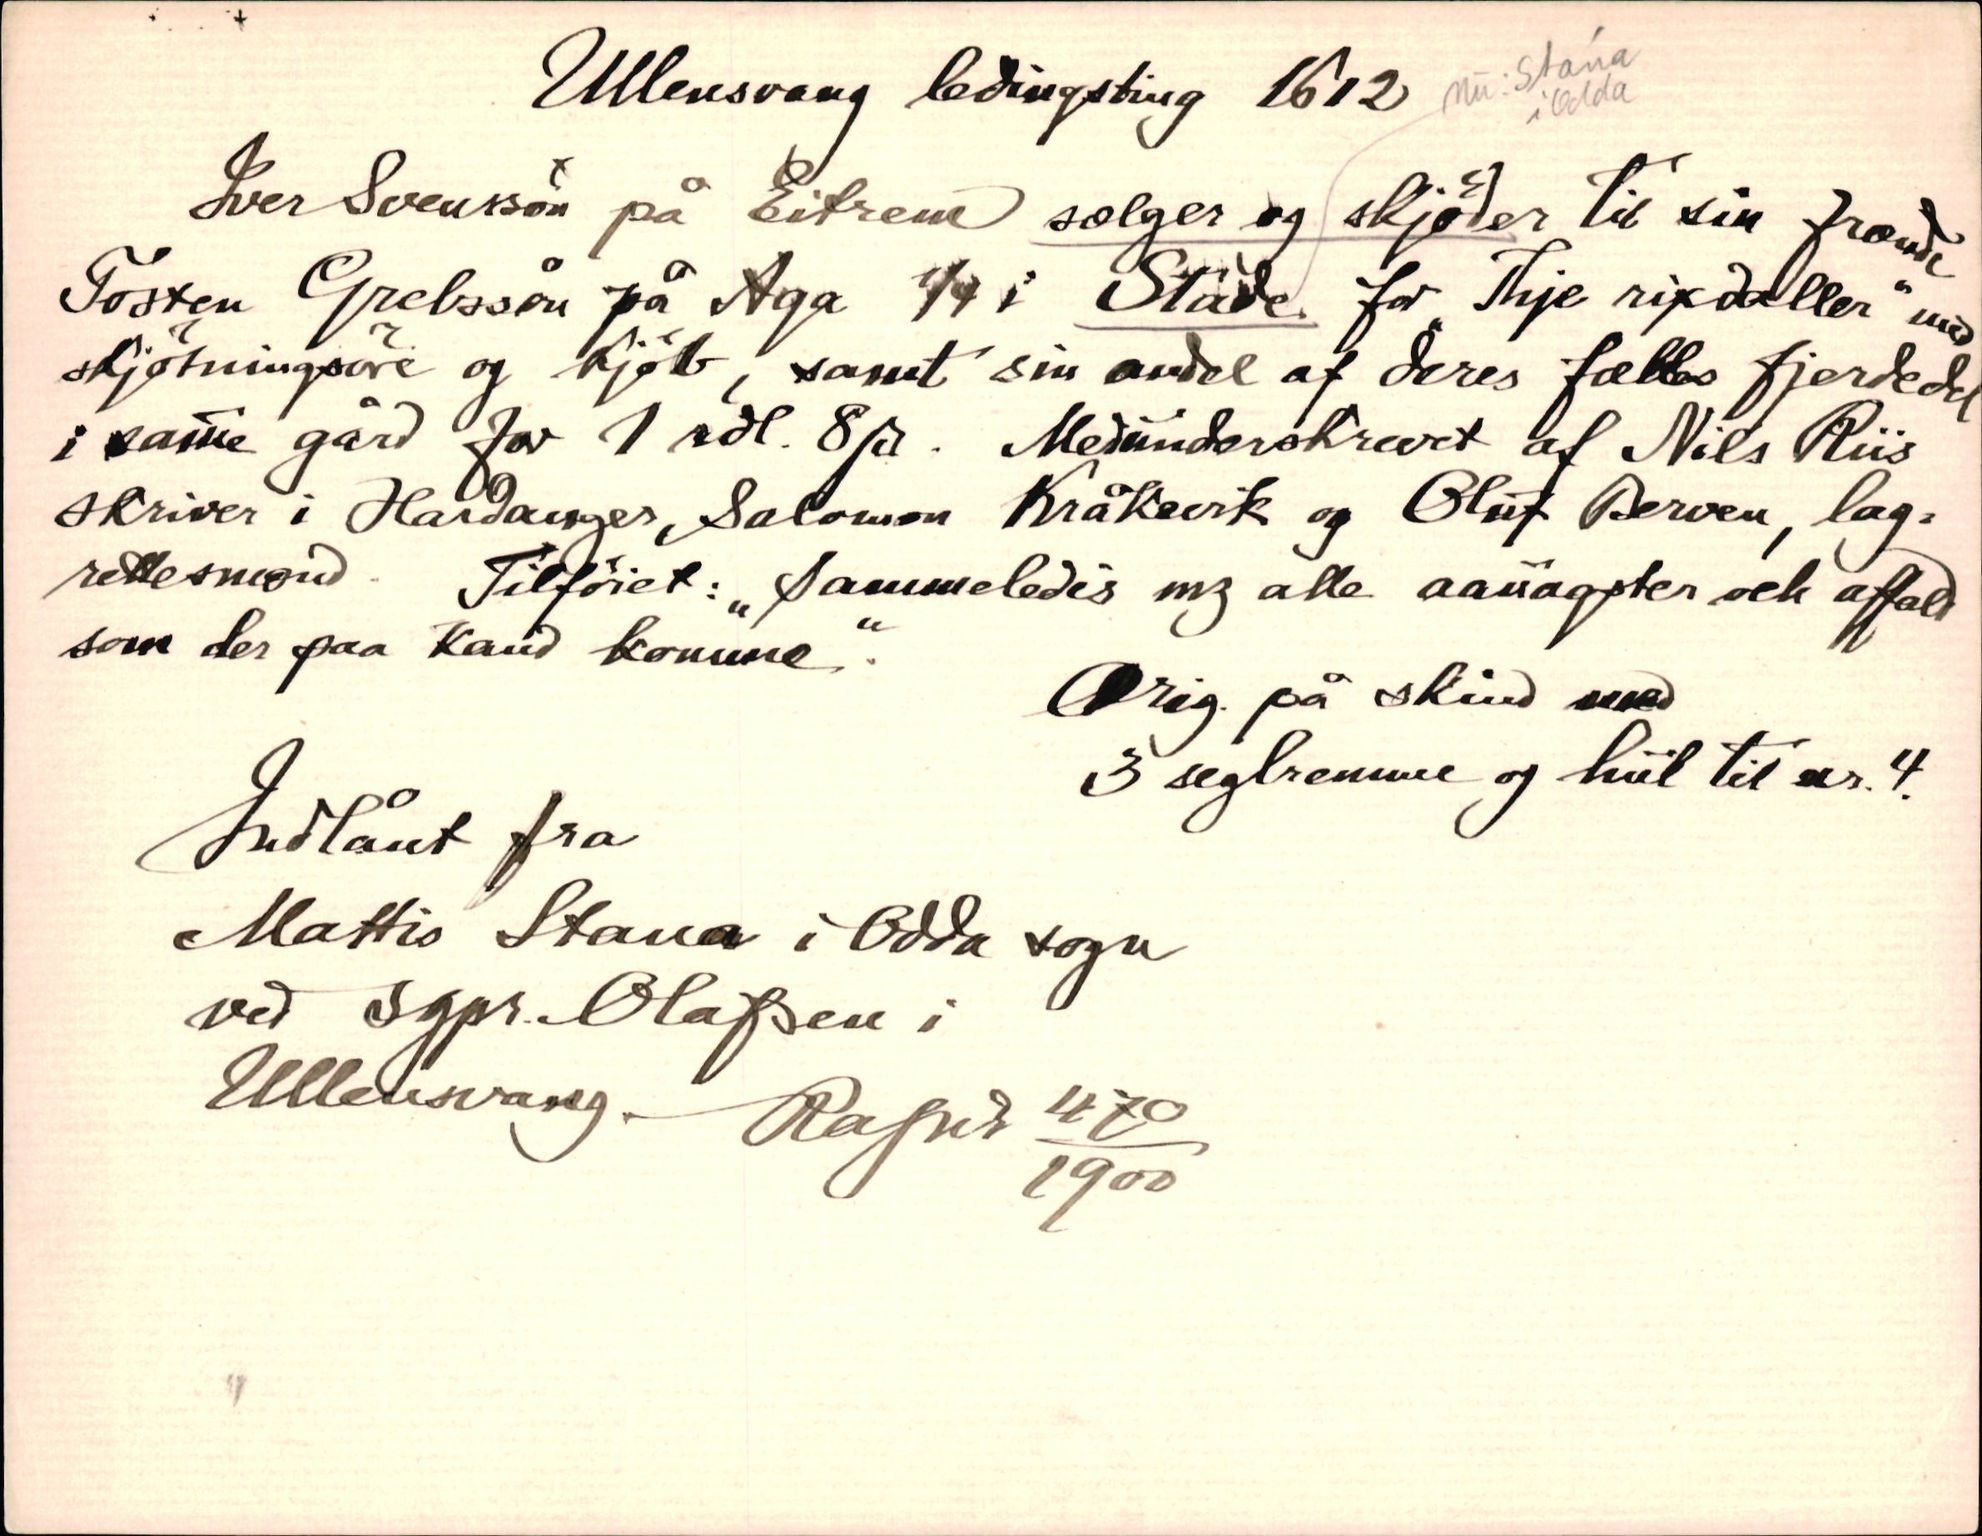 Ullensvang ledingsting 1612
nu: Stana
i Odda
Iver Svenssön på Eitrem sælger og skjöder til sin frænde
Tosten Grebssön på Aga 1/4 i Stade for "Thje rixdaller" med
skjötningsöre og kjöb, samt sin andel af deres fælles fjerdedel
i samme gård for 1 rdl. 8 β. Medunderskrevet af Nils Riis
skriver i Hardanger, Salomon Kråkevik og Oluf Berven, lag-
rettesmænd. Tilföiet: "Sammeledis mz alle aauagster och affald
som der paa kand komme".
Orig. på skind med
3 seglremme og hul til nr. 4.
Indlånt fra
Mattis Stana i Odda sogn
ved sgpr. Olafsen i
Ullensvang. Kasjnd 470
1900